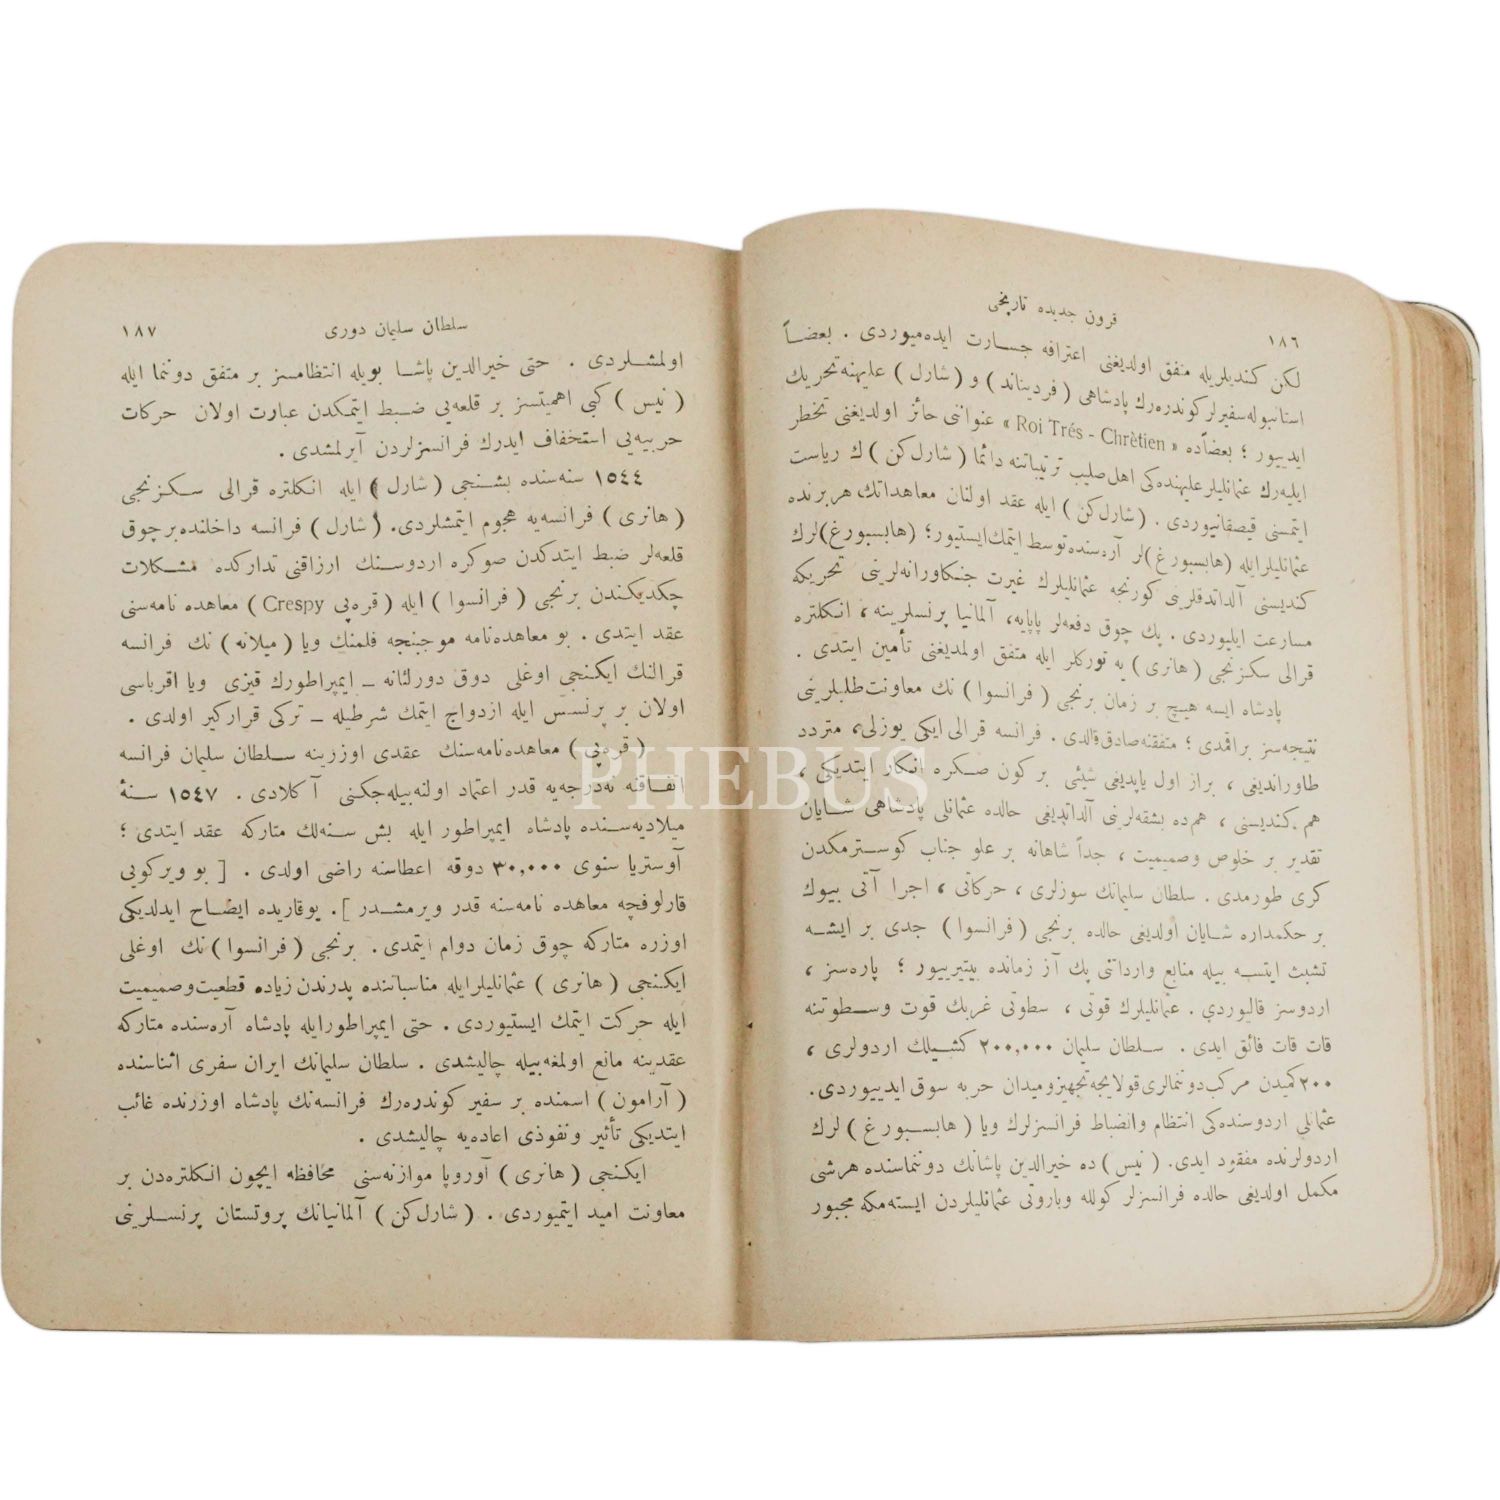 ١٨٦
قرون جدیده تاریخی
لكن كندیلریله متفق اولدیغنی اعترافه جسارت ایده‌میوردی . بعضاً
استانبوله‌سفیرلر كوندره‌رك پادشاهی ( فردیناند ) و ( شارل ) علیهنه‌تحریك
ایدییور ؛ بعضاًده « Roi Trés - Chrètien » عنواننی حائز اولدیغنی تخطر
ایلیه‌رك عثمانلیلر علیهنده‌كی اهل‌صلیب ترتیباتنه دائما ( شارل‌كن ) ك ریاست
ایتمسنی قیصقانیوردی . ( شارل‌كن ) ایله عقد اولنان معاهداتك هربرنده
عثمانلیلرایله (هابسبورغ)لر آره‌سنده‌توسط ایتمك‌ایستیور؛ (هابسبورغ)لرك
كندیسنی آلداتدقلرینی كورنجه عثمانلیلرك غیرت جنكاورانه‌لرینی تحریكه
مسارعت ایلیوردی . پك چوق دفعه‌لر پاپایه، آلمانیا پرنسلرینه ، انكلتره
قرالی سكزنجی ( هانری ) یه توركلر ایله متفق اولمدیغنی تأمین ایتدی .
پادشاه ایسه هیچ بر زمان برنجی ( فرانسوا ) نك معاونت‌طلبلرینی
نتیجه‌سز براقمدی ؛ متفقنه‌صادق‌قالدی . فرانسه قرالی ایكی یوزلی، متردد
طاوراندیغی ، براز اول یاپدیغی شیئی بر كون صكره انكار ایتدیكی ،
هم كندیسنی ، هم‌ده بشقه‌لرینی آلداتدیغی حالده عثمانلی پادشاهی شایان
تقدیر بر خلوص وصمیمیت ، جداً شاهانه بر علو جناب كوسترمكدن
كری طورمدی . سلطان سلیمانك سوزلری ، حركاتی ، اجرا آتی بیوك
بر حكمداره شایان اولدیغی حالده برنجی ( فرانسوا ) جدی بر ایشه
تشبث ایتسه بیله منابع وارداتنی پك آز زمانده بیتیرییور ؛ پاره‌سز ،
اردوسز قالیوردي . عثمانلیلرك قوتی ، سطوتی غربك قوت وسطوتنه
قات قات فائق ایدی . سلطان سلیمان ٢٠٠,٠٠٠ كشیلك اردولری ،
٢٠٠ كمیدن مركب‌دوننمالری‌قولایجه‌تجهیزومیدان حربه سوق‌ایدییوردی.
عثمانلی اردوسنده‌كی انتظام وانضباط فرانسزلرك ویا ( هابسبورغ ) لرك
اردولرنده مفقود ایدی. ( نیس ) ده خیرالدین پاشانك دوننماسنده هرشی
مكمل اولدیغی حالده فرانسزلر كولله وباروتی عثمانلیلردن ایسته‌مكه مجبور
سلطان سلیمان دوری
١٨٧
اولمشلردی . حتی خیرالدین پاشا بویله انتظامسز بر متفق دوننما ایله
( نیس ) كبی اهمیتسز بر قلعه‌یی ضبط ایتمكدن عبارت اولان حركات
حربیه‌یی استخفاف ایدرك فرانسزلردن آیرلمشدی .
١٥٤٤ سنه‌سنده بشنجی ( شارل ) ایله انكلتره قرالی سكزنجی
( هانری ) فرانسه‌یه هجوم ایتمشلردی. ( شارل ) فرانسه داخلنده برچوق
قلعه‌لر ضبط ایتدكدن صوكره اردوسنك ارزاقنی تداركده مشكلات
چكدیكندن برنجی ( فرانسوا ) ایله ( قره‌پی Crespy ) معاهده نامه‌سنی
عقد ایتدی . بو معاهده‌نامه موجبنجه فلمنك ویا ( میلانه ) نك فرانسه
قرالنك ایكنجی اوغلی دوق دورلئانه – ایمپراطورك قیزی ویا اقرباسی
اولان بر پرنسس ایله ازدواج ایتمك شرطیله – تركی قرارگیر اولدی .
( قره‌پی ) معاهده‌نامه‌سنك عقدی اوزرینه سلطان سلیمان فرانسه
اتفاقنه نه‌درجه‌یه قدر اعتماد اولنه‌بیله‌جكنی آكلادی . ١٥٤٧ سنهٔ
میلادیه‌سنده پادشاه ایمپراطور ایله بش سنه‌لك متاركه عقد ایتدی ؛
آوستریا سنوی ٣٠,٠٠٠ دوقه اعطاسنه راضی اولدی . [ بو ویركویی
قارلوفچه معاهده نامه‌سنه قدر ویرمشدر ]. یوقاریده ایضاح ایدلدیكی
اوزره متاركه چوق زمان دوام ایتمدی . برنجی ( فرانسوا ) نك اوغلی
ایكنجی ( هانری ) عثمانلیلرایله مناسباتنده پدرندن زیاده قطعیت‌وصمیمیت
ایله حركت ایتمك ایستیوردی . حتی ایمپراطورایله پادشاه آره‌سنده متاركه
عقدینه مانع اولمغه‌بیله چالیشدی . سلطان سلیمانك ایران سفری اثناسنده
( آرامون ) اسمنده بر سفیر كوندره‌رك فرانسه‌نك پادشاه اوزرنده غائب
ایتدیكی تأثیر ونفوذی اعاده‌یه چالیشدی .
ایكنجی ( هانری ) آوروپا موازنه‌سنی محافظه ایچون انكلتره‌دن بر
معاونت امید ایتمیوردی . ( شارل‌كن ) آلمانیانك پروتستان پرنسلرینی
PHEBUS